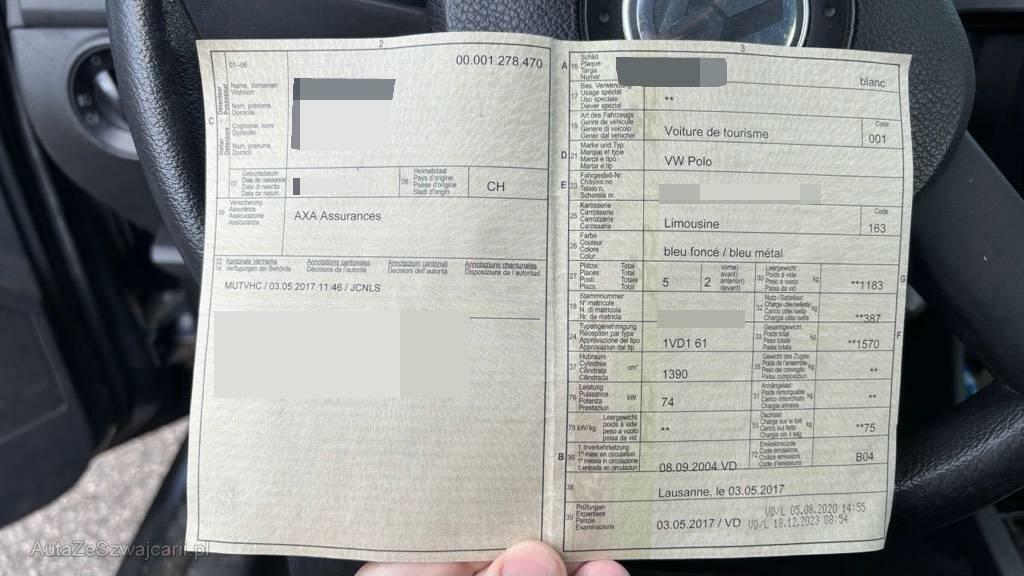 2
01–06
00.001.278.470
Name, Vornamen
Wohnort
Nom, prénoms
Domicile
C
Cognome, nomi
Domicilio
Num, prenums
Domicil
07
Geburtsdatum
Date de naissance
Data di nascita
Data da nasch.
08
Heimatstaat
Pays d'origine
Paese d'origine
Stadi d'origin
CH
09
Versicherung
Assurance
Assicurazione
Assicuranza
AXA Assurances
13
14
Kantonale Vermerke
Verfügungen der Behörde
Annotations cantonales
Décisions de l'autorité
Annotazioni cantonali
Decisioni dell'autorità
Annotaziuns chantunalas
Disposiziuns da l'autoritad
MUTVHC / 03.05.2017 11:46 / JCNLS
3
A 15
Schild
Plaque
Targa
Numer
blanc
17
Bes. Verwendung
Usage spécial
Uso speciale
Diever spezial
**
19
Art des Fahrzeugs
Genre de véhicule
Genere di veicolo
Gener dal vehichel
Voiture de tourisme
Code
001
D 21
Marke und Typ
Marque et type
Marca e tipo
Marca e tip
VW Polo
E 23
Fahrgestell-Nr.
Châssis no
Telaio n.
Schassis nr.
25
Karosserie
Carrosserie
Carrozzeria
Carossaria
Limousine
Code
163
26
Farbe
Couleur
Colore
Colur
bleu foncé / bleu métal
27
Plätze: Total
Places: Total
Posti: Totale
Plazs: Total
5
2
vorne)
avant)
anteriori)
davant)
30
Leergewicht
Poids à vide
Peso a vuoto
Paisa da vid
kg
**1183
G
18
Stammnummer
N° matricule
N. di matricola
Nr. da matricla
32
Nutz-/Sattellast
Charge utile/sellette
Carico utile/sella
Chargia utila/sella
kg
**387
24
Typengenehmigung
Réception par type
Approvazione del tipo
Approvaziun dal tip
1VD1 61
33
Gesamtgewicht
Poids total
Peso totale
Paisa totala
kg
**1570
F
37
Hubraum
Cylindrée
Cilindrata
Cilindrada
cm³
1390
35
Gewicht des Zuges
Poids de l'ensemble
Peso del convoglio
Paisa cumposiziun
kg
**
76
Leistung
Puissance
Potenza
Prestaziun
kW
74
31
Anhängelast
Poids remorquable
Carico rimorchiato
Chargia annexa
kg
**
78 kW/kg
Leergewicht
poids à vide
peso a vuoto
paisa da vid
**
55
Dachlast
Charge sur le toit
Carico sul tetto
Chargia sin il tetg
kg
**75
B 36
1. Inverkehrsetzung
1re mise en circulation
1a messa in circolazione
1. entrada en circulaziun
08.09.2004 VD
72
Emissionscode
Code émissions
Codice emissioni
Code d'emissiuns
B04
38
Lausanne, le 03.05.2017
39
Prüfungen
Expertises
Perizie
Examinaziuns
03.05.2017 / VD
VD/L 05.08.2020 14:55
VD/L 18.12.2023 08:54
AutaZeSzwajcarii.pl